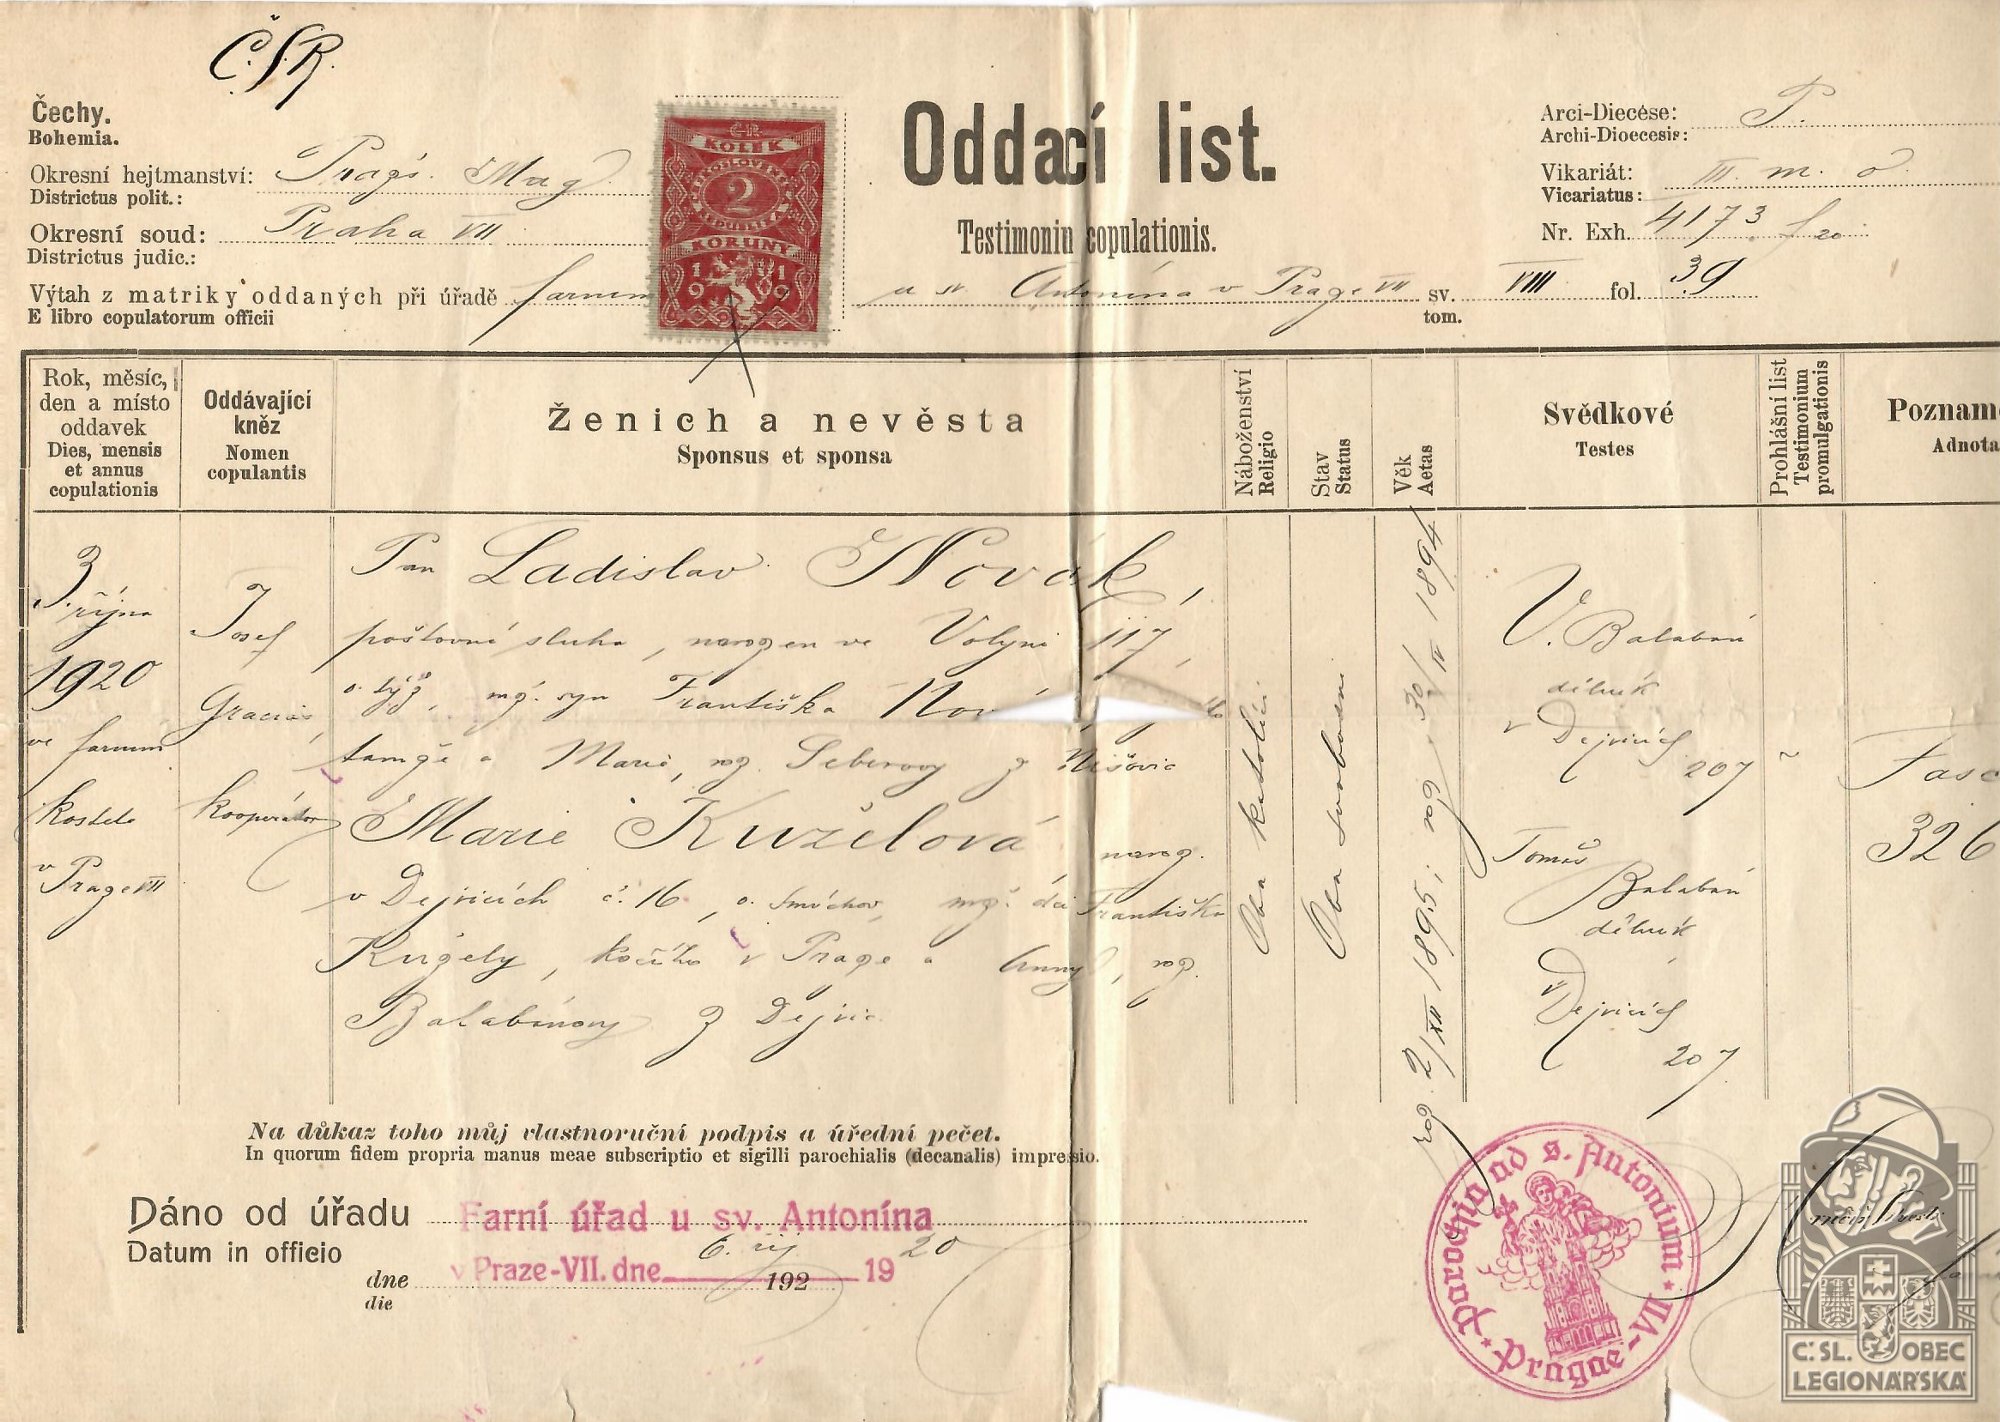 Č.S.R.
Čechy.
Bohemia.
Okresní hejtmanství: Praž. Mag.
Districtus polit.:
Okresní soud: Praha VII
Districtus judic.:
Výtah z matriky oddaných při úřadě farním
E libro copulatorum officii
Č.R.
KOLEK
2
KORUNY
1919
Oddací list.
Testimonium copulationis.
u sv. Antonína v Praze VII sv. VIII fol. 39
tom.
Arci-Diecése: P.
Archi-Dioecesis:
Vikariát: III. m. o.
Vicariatus:
Nr. Exh. 4173 20
Rok, měsíc, den a místo oddavek
Dies, mensis et annus copulationis
Oddávající kněz
Nomen copulantis
Ženich a nevěsta
Sponsus et sponsa
Náboženství
Religio
Stav
Status
Věk
Aetas
Svědkové
Testes
Prohlášní list
Testimonium promulgationis
Poznam
Adnota
3.
října
1920
ve farním
kostele
v Praze VII
Josef
kooperátor
Pan Ladislav Novák,
poštovní sluha, narozen ve Volyni 117,
o. týž, mž. syn Františka Nov
tamže a Marie, roz. Seberovy z Nišovic
Marie Kuželová naroz.
v Dejvicích č. 16, o. Smíchov, mž. dci Františka
Kužely, kočího v Praze a Anny, roz.
Balabánovy z Dejvic.
Oba katolíci
Oba svobodni
roz. 2/XII 1895; roz. 30/IV 1894
V. Balabán
dělník
v Dejvicích
207
Tomáš
Balabán
dělník
v Dejvicích
207
Fasc
326
Na důkaz toho můj vlastnoruční podpis a úřední pečet.
In quorum fidem propria manus meae subscriptio et sigilli parochialis (decanalis) impressio.
Dáno od úřadu Farní úřad u sv. Antonína
Datum in officio
v Praze-VII. dne 6. říj 19 20
dne 192
die
Parochia ad s. Antonium * Pragae-VII *
Č. SL. OBEC
LEGIONÁŘSKÁ